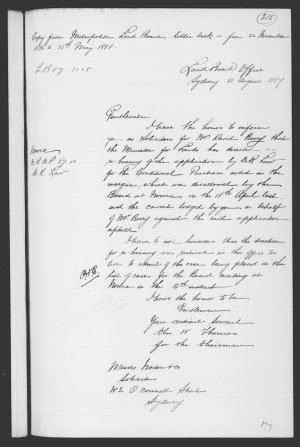 215
Copy from Metropolitan Land Board letter book — from 22 November
1886 to 28th May 1888.
L.B 87. 3125
Land Board Office
Sydney 12 August 1887
Gentlemen
I have the honor to inform
you - as Solicitors for Mr David Berry that
the Minister for Lands has directed a
re-hearing of the application by E.R. Law
for the Conditional Purchase noted in the
margin, which was disallowed by the
Board at Nowra on the 18th April last
and the caveat lodged by you on behalf
of Mr Berry against the said application
upheld.
Nowra
C.P. 87.10
E R Law
I have to add however that the direction
for re-hearing was received in this office too
late to admit of the case being placed in the
list of cases for the Board meeting at
Nowra on the 15th instant
I have the honor to be
Gentlemen
Your obedient Servant
Chas W Thomas
for the Chairman
Messrs Norton & Co
Solicitors
O'Connell Street
Sydney